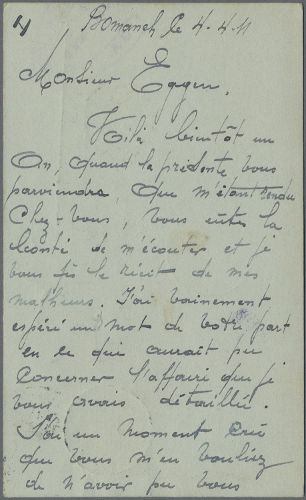 1
Bomanch le 4-4-11
Monsieur Eggen.
Voilà bientôt un
an, quand la présente vous
parviendra, que m'étant rendu
chez-vous, vous eûtes la
bonté de m'écouter et je
vous fis le récit de mes
malheurs. J'ai vainement
espéré un mot de votre part
en ce qui aurait pu
concerner l'affaire que je
vous avais détaillée.
J'ai un moment cru
que vous m'en vouliez
de n'avoir pu vous